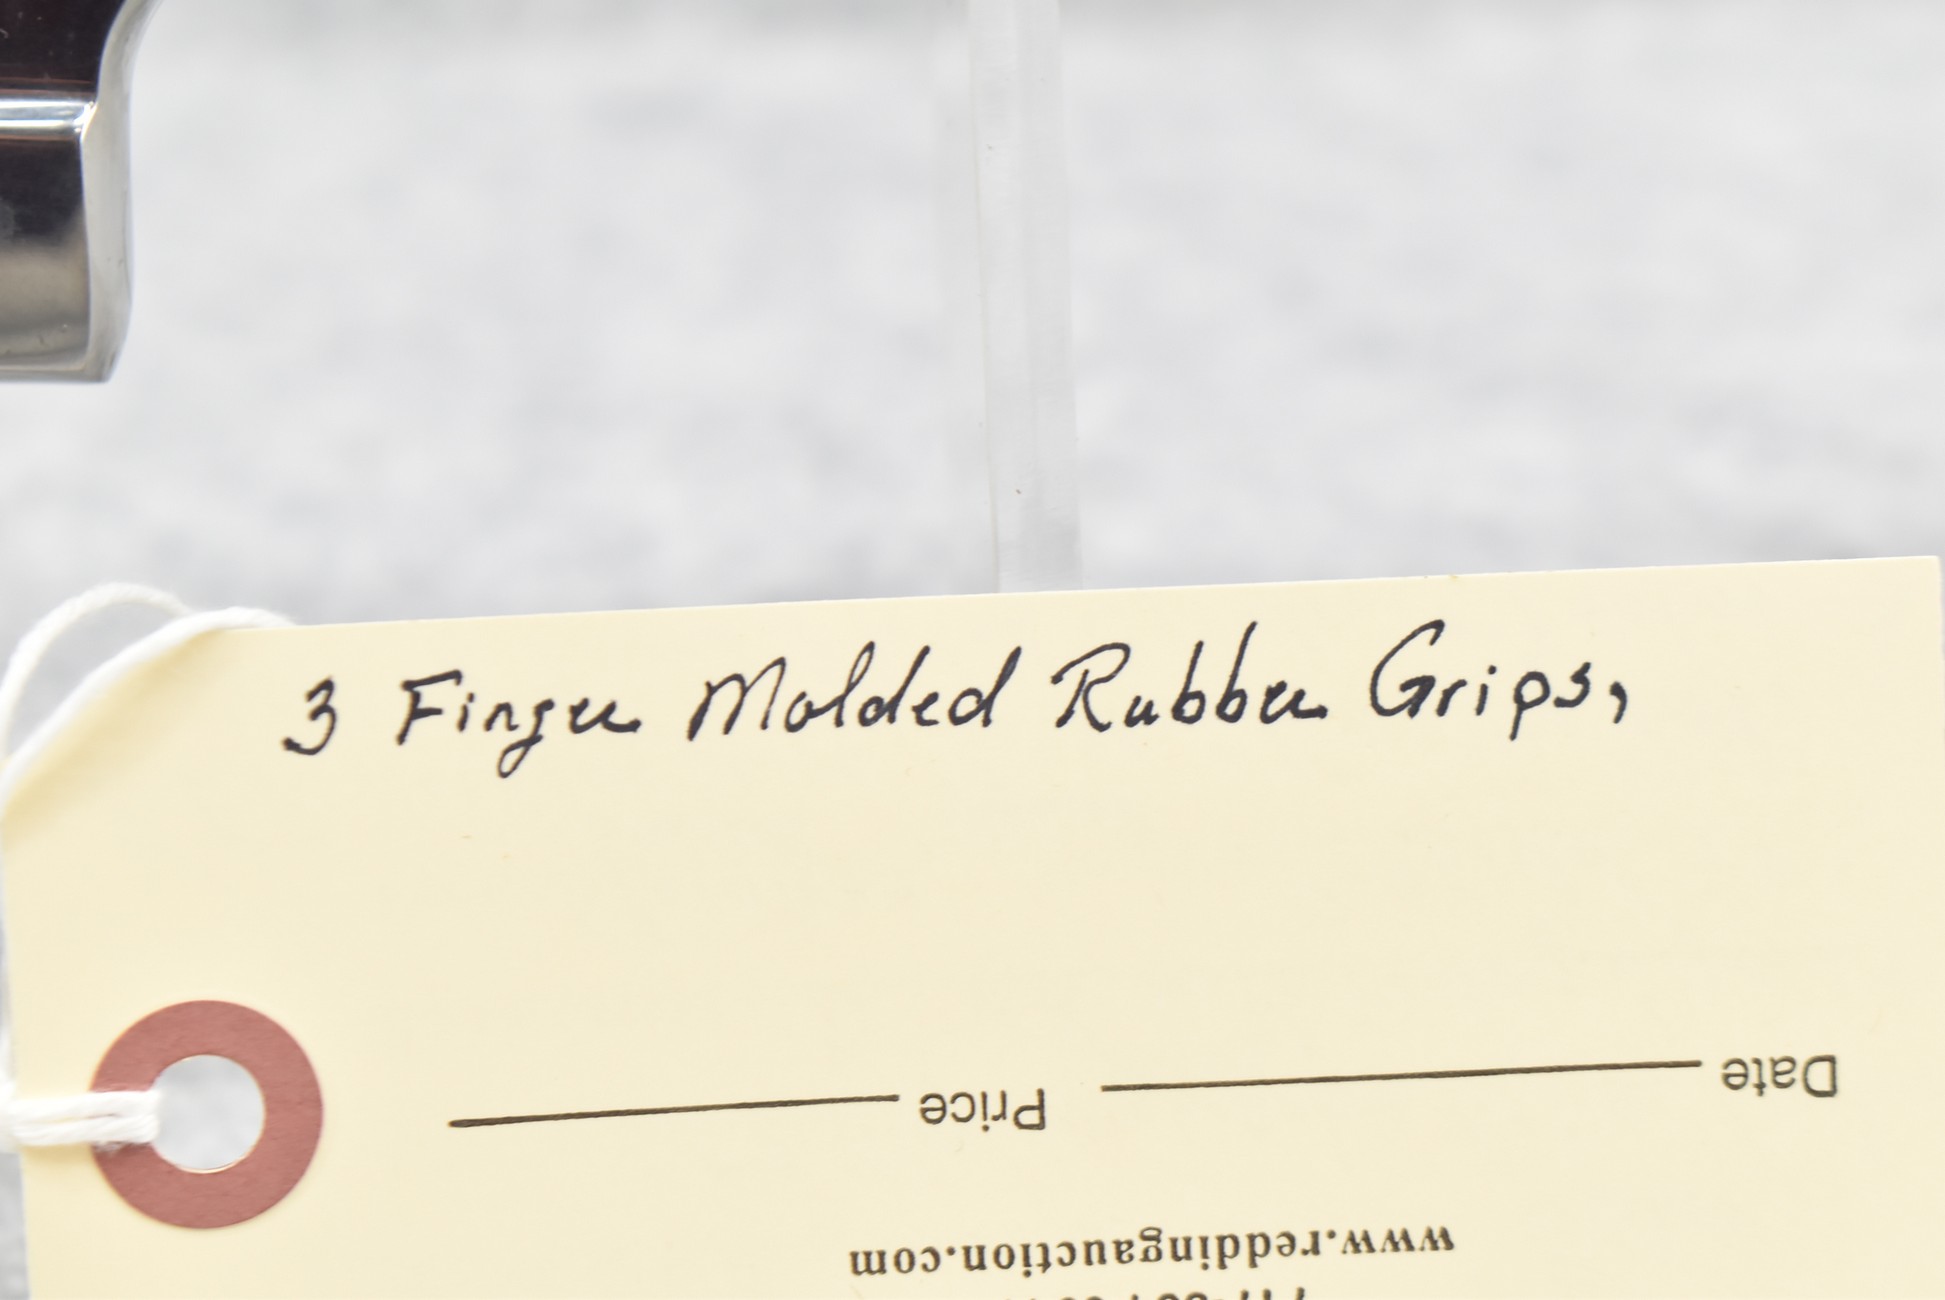 3 Finger Molded Rubber Grips,
Date Price
www.reddingauction.com